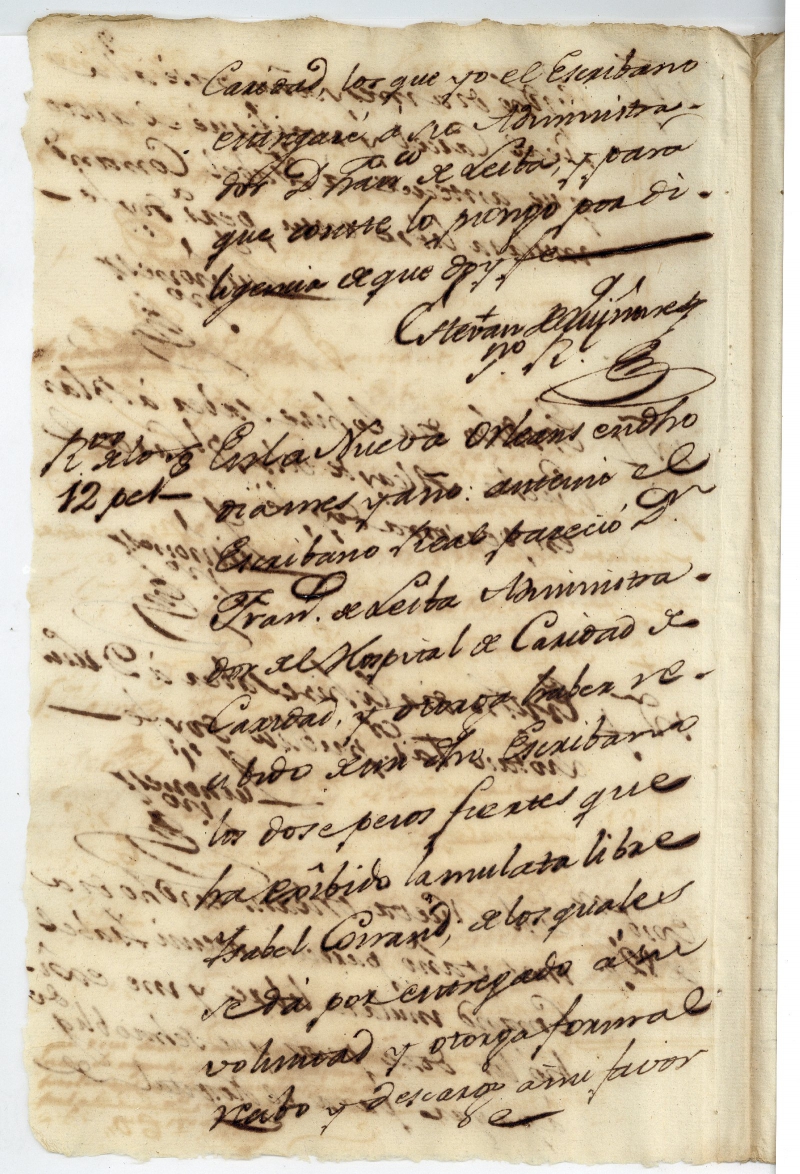 Caridad, los que yo el Escribano
entregaré á su Administra-
dor Dn Franco de Leiba, y para
que conste lo pongo por di-
ligencia de que doy fe
Estevan de Quiñones
Rvo de los
12 ps
En la Nueva Orleans en dho
dia mes y año: antemi el
Escribano Real pareció Dn
Fran.co de Leiba Administra-
dor del Hospital de Caridad de
Caridad, y otorga haber re-
cibido de mi dho Escribano
los dose pesos fuertes que
ha exîbido la mulata libre
Isabel, de los quales
se dá por entregado á su
voluntad y otorga formal
recibo y descargo á mi favor